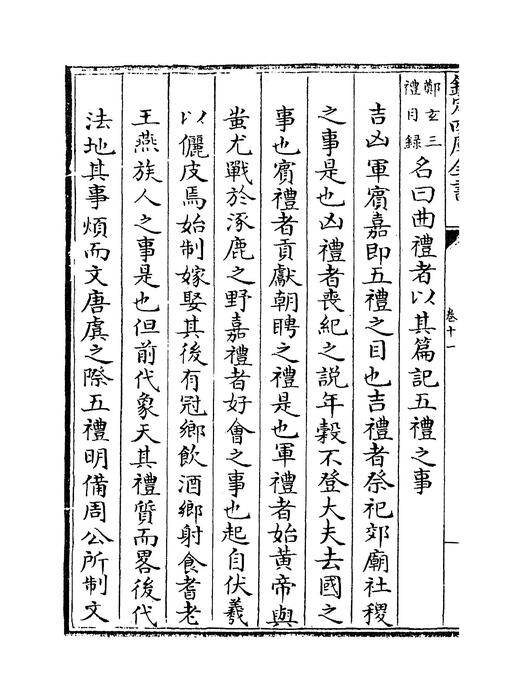 欽定四庫全書
卷十一
鄭玄三
禮目錄
名曰曲禮者以其篇記五禮之事
吉凶軍賓嘉即五禮之目也吉禮者祭祀郊廟社稷
之事是也凶禮者喪紀之説年穀不登大夫去國之
事也賓禮者貢獻朝聘之禮是也軍禮者始黄帝與
蚩尤戰於涿鹿之野嘉禮者好會之事也起自伏羲
以儷皮焉始制嫁娶其後有冠鄉飲酒鄉射食耆老
王燕族人之事是也但前代象天其禮質而畧後代
法地其事煩而文唐虞之際五禮明備周公所制文